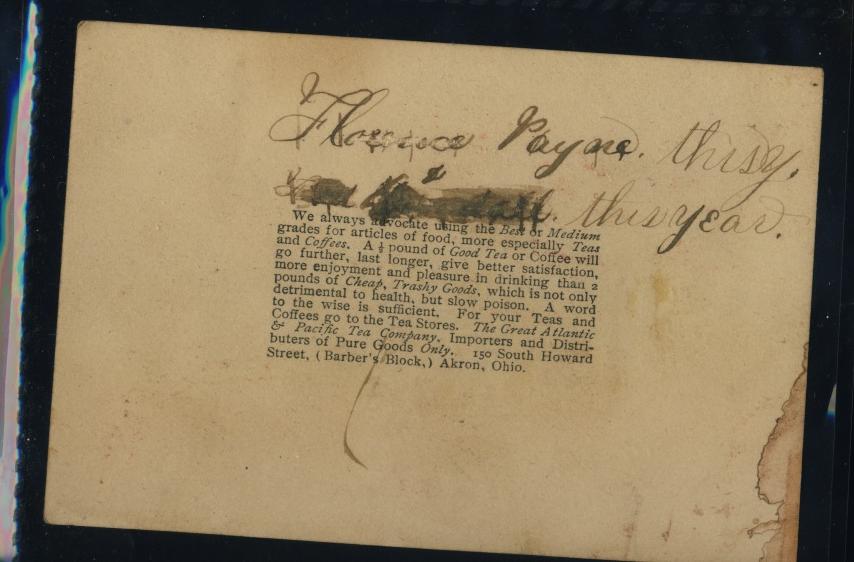 Florence Payne. this y.
&
this year.
We always advocate using the Best or Medium
grades for articles of food, more especially Teas
and Coffees. A ½ pound of Good Tea or Coffee will
go further, last longer, give better satisfaction,
more enjoyment and pleasure in drinking than 2
pounds of Cheap, Trashy Goods, which is not only
detrimental to health, but slow poison. A word
to the wise is sufficient. For your Teas and
Coffees go to the Tea Stores. The Great Atlantic
& Pacific Tea Company, Importers and Distri-
buters of Pure Goods Only. 150 South Howard
Street, (Barber's Block,) Akron, Ohio.